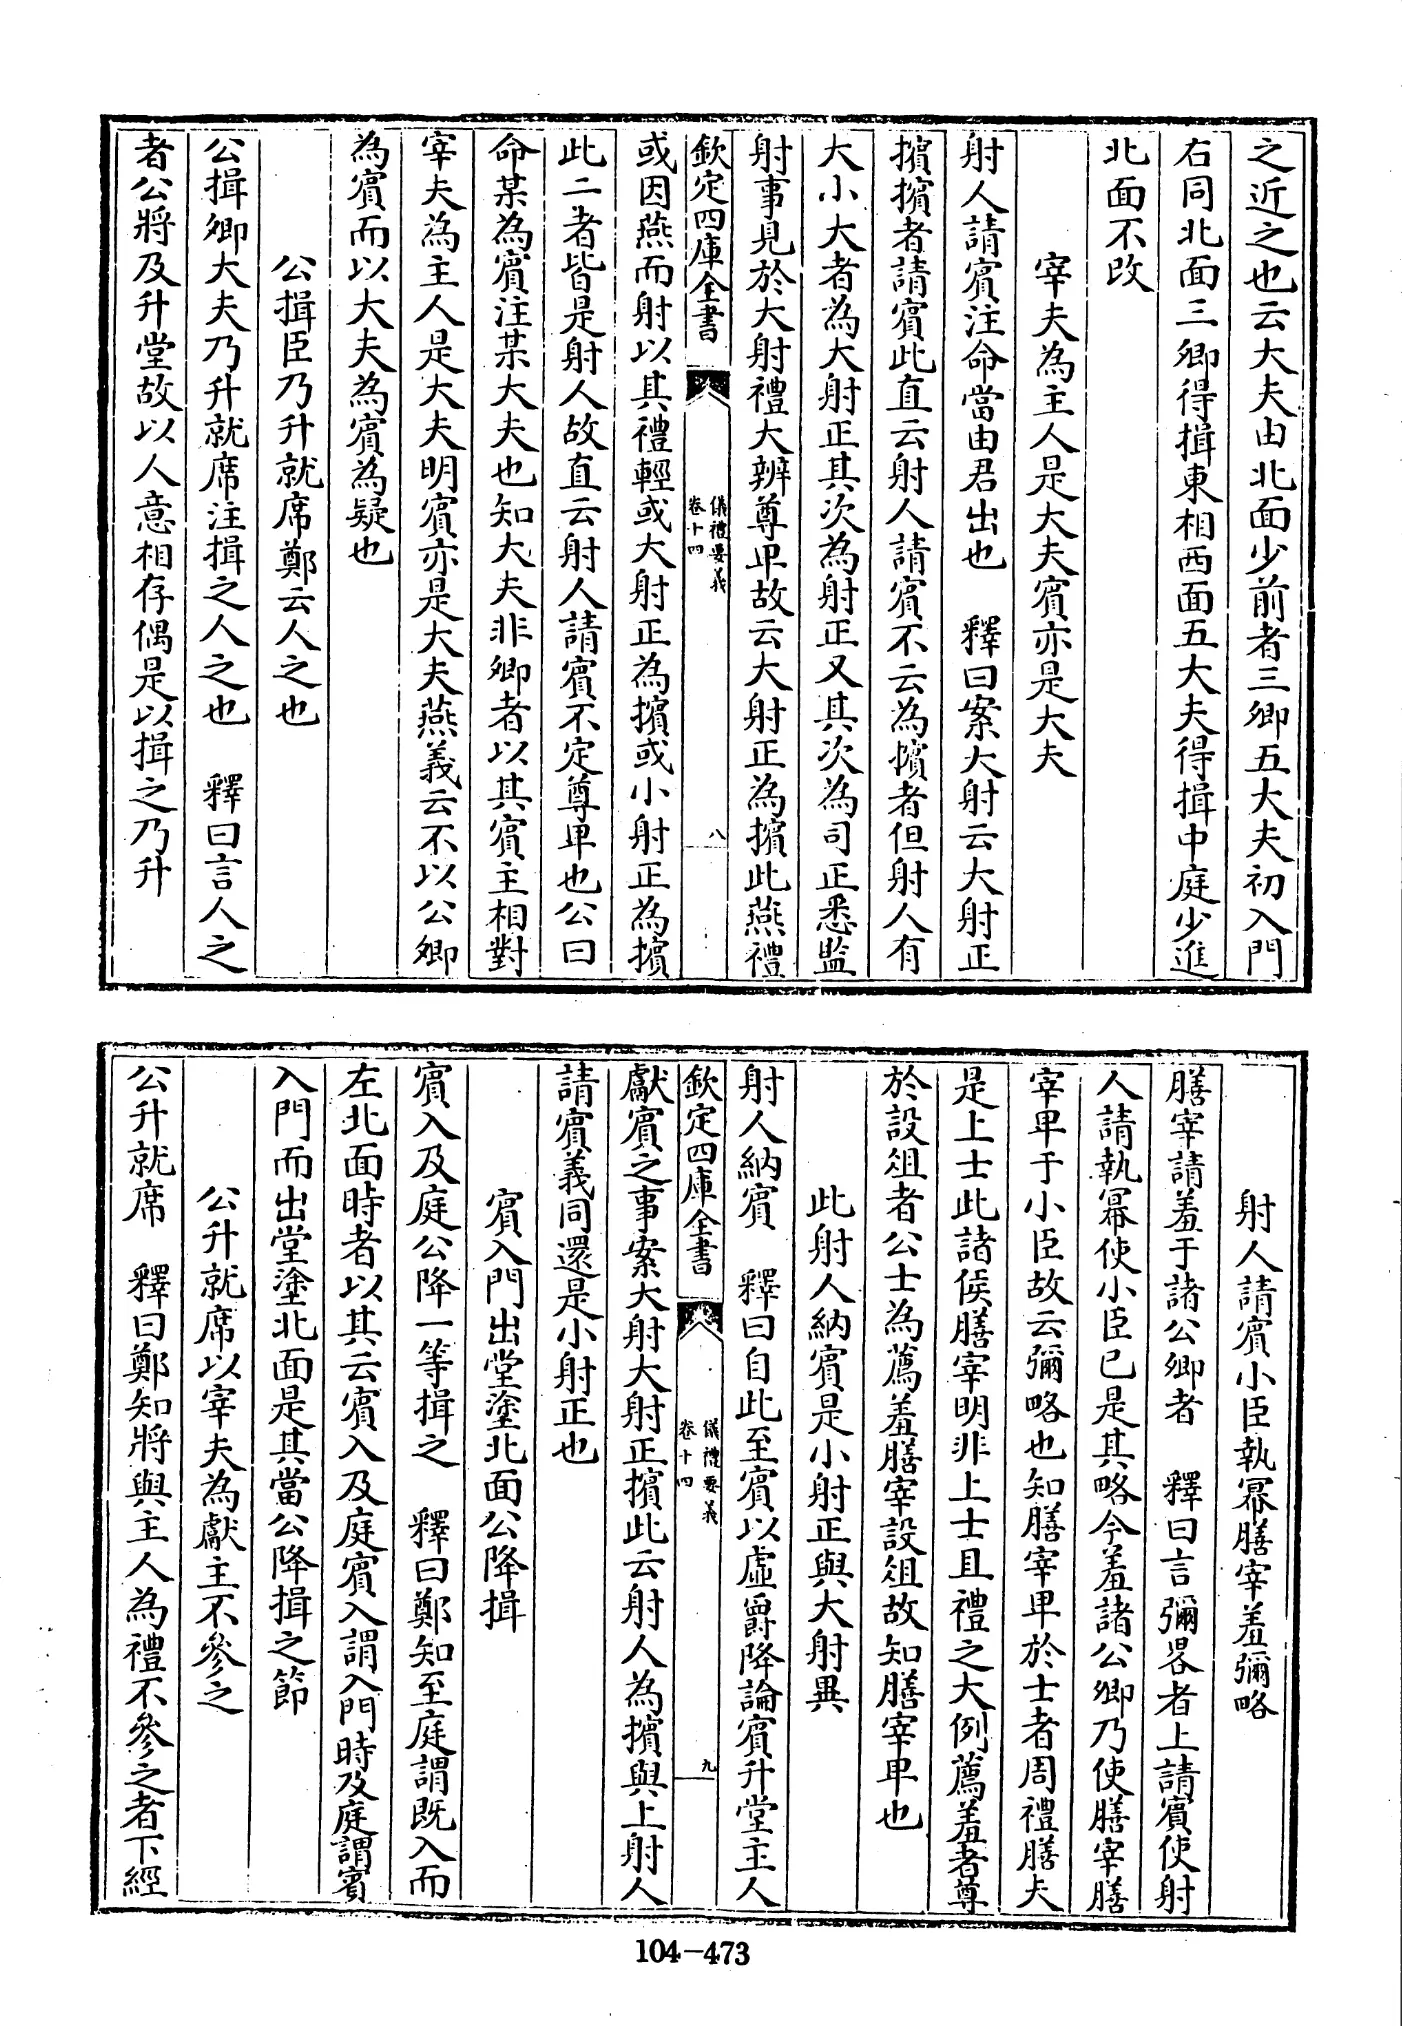 之近之也云大夫由北面少前者三卿五大夫初入門
右同北面三卿得揖東相西面五大夫得揖中庭少進
北面不改
宰夫為主人是大夫賓亦是大夫
射人請賓注命當由君出也　釋曰案大射云大射正
擯擯者請賓此直云射人請賓不云為擯者但射人有
大小大者為大射正其次為射正又其次為司正悉監
射事見於大射禮大辨尊卑故云大射正為擯此燕禮
欽定四庫全書
儀禮要義
卷十四
八
或因燕而射以其禮輕或大射正為擯或小射正為擯
此二者皆是射人故直云射人請賓不定尊卑也公曰
命某為賓注某大夫也知大夫非卿者以其賓主相對
宰夫為主人是大夫明賓亦是大夫燕義云不以公卿
為賓而以大夫為賓為疑也
公揖臣乃升就席鄭云人之也
公揖卿大夫乃升就席注揖之人之也　釋曰言人之
者公將及升堂故以人意相存偶是以揖之乃升
射人請賓小臣執冪膳宰羞彌略
膳宰請羞于諸公卿者　釋曰言彌畧者上請賓使射
人請執冪使小臣已是其略今羞諸公卿乃使膳宰膳
宰卑于小臣故云彌略也知膳宰卑於士者周禮膳夫
是上士此諸侯膳宰明非上士且禮之大例薦羞者尊
於設俎者公士為薦羞膳宰設俎故知膳宰卑也
此射人納賓是小射正與大射異
射人納賓　釋曰自此至賓以虛爵降論賓升堂主人
欽定四庫全書
儀禮要義
卷十四
九
獻賓之事案大射大射正擯此云射人為擯與上射人
請賓義同還是小射正也
賓入門出堂塗北面公降揖
賓入及庭公降一等揖之　釋曰鄭知至庭謂既入而
左北面時者以其云賓入及庭賓入謂入門時及庭謂賓
入門而出堂塗北面是其當公降揖之節
公升就席以宰夫為獻主不參之
公升就席　釋曰鄭知將與主人為禮不參之者下經
104-473